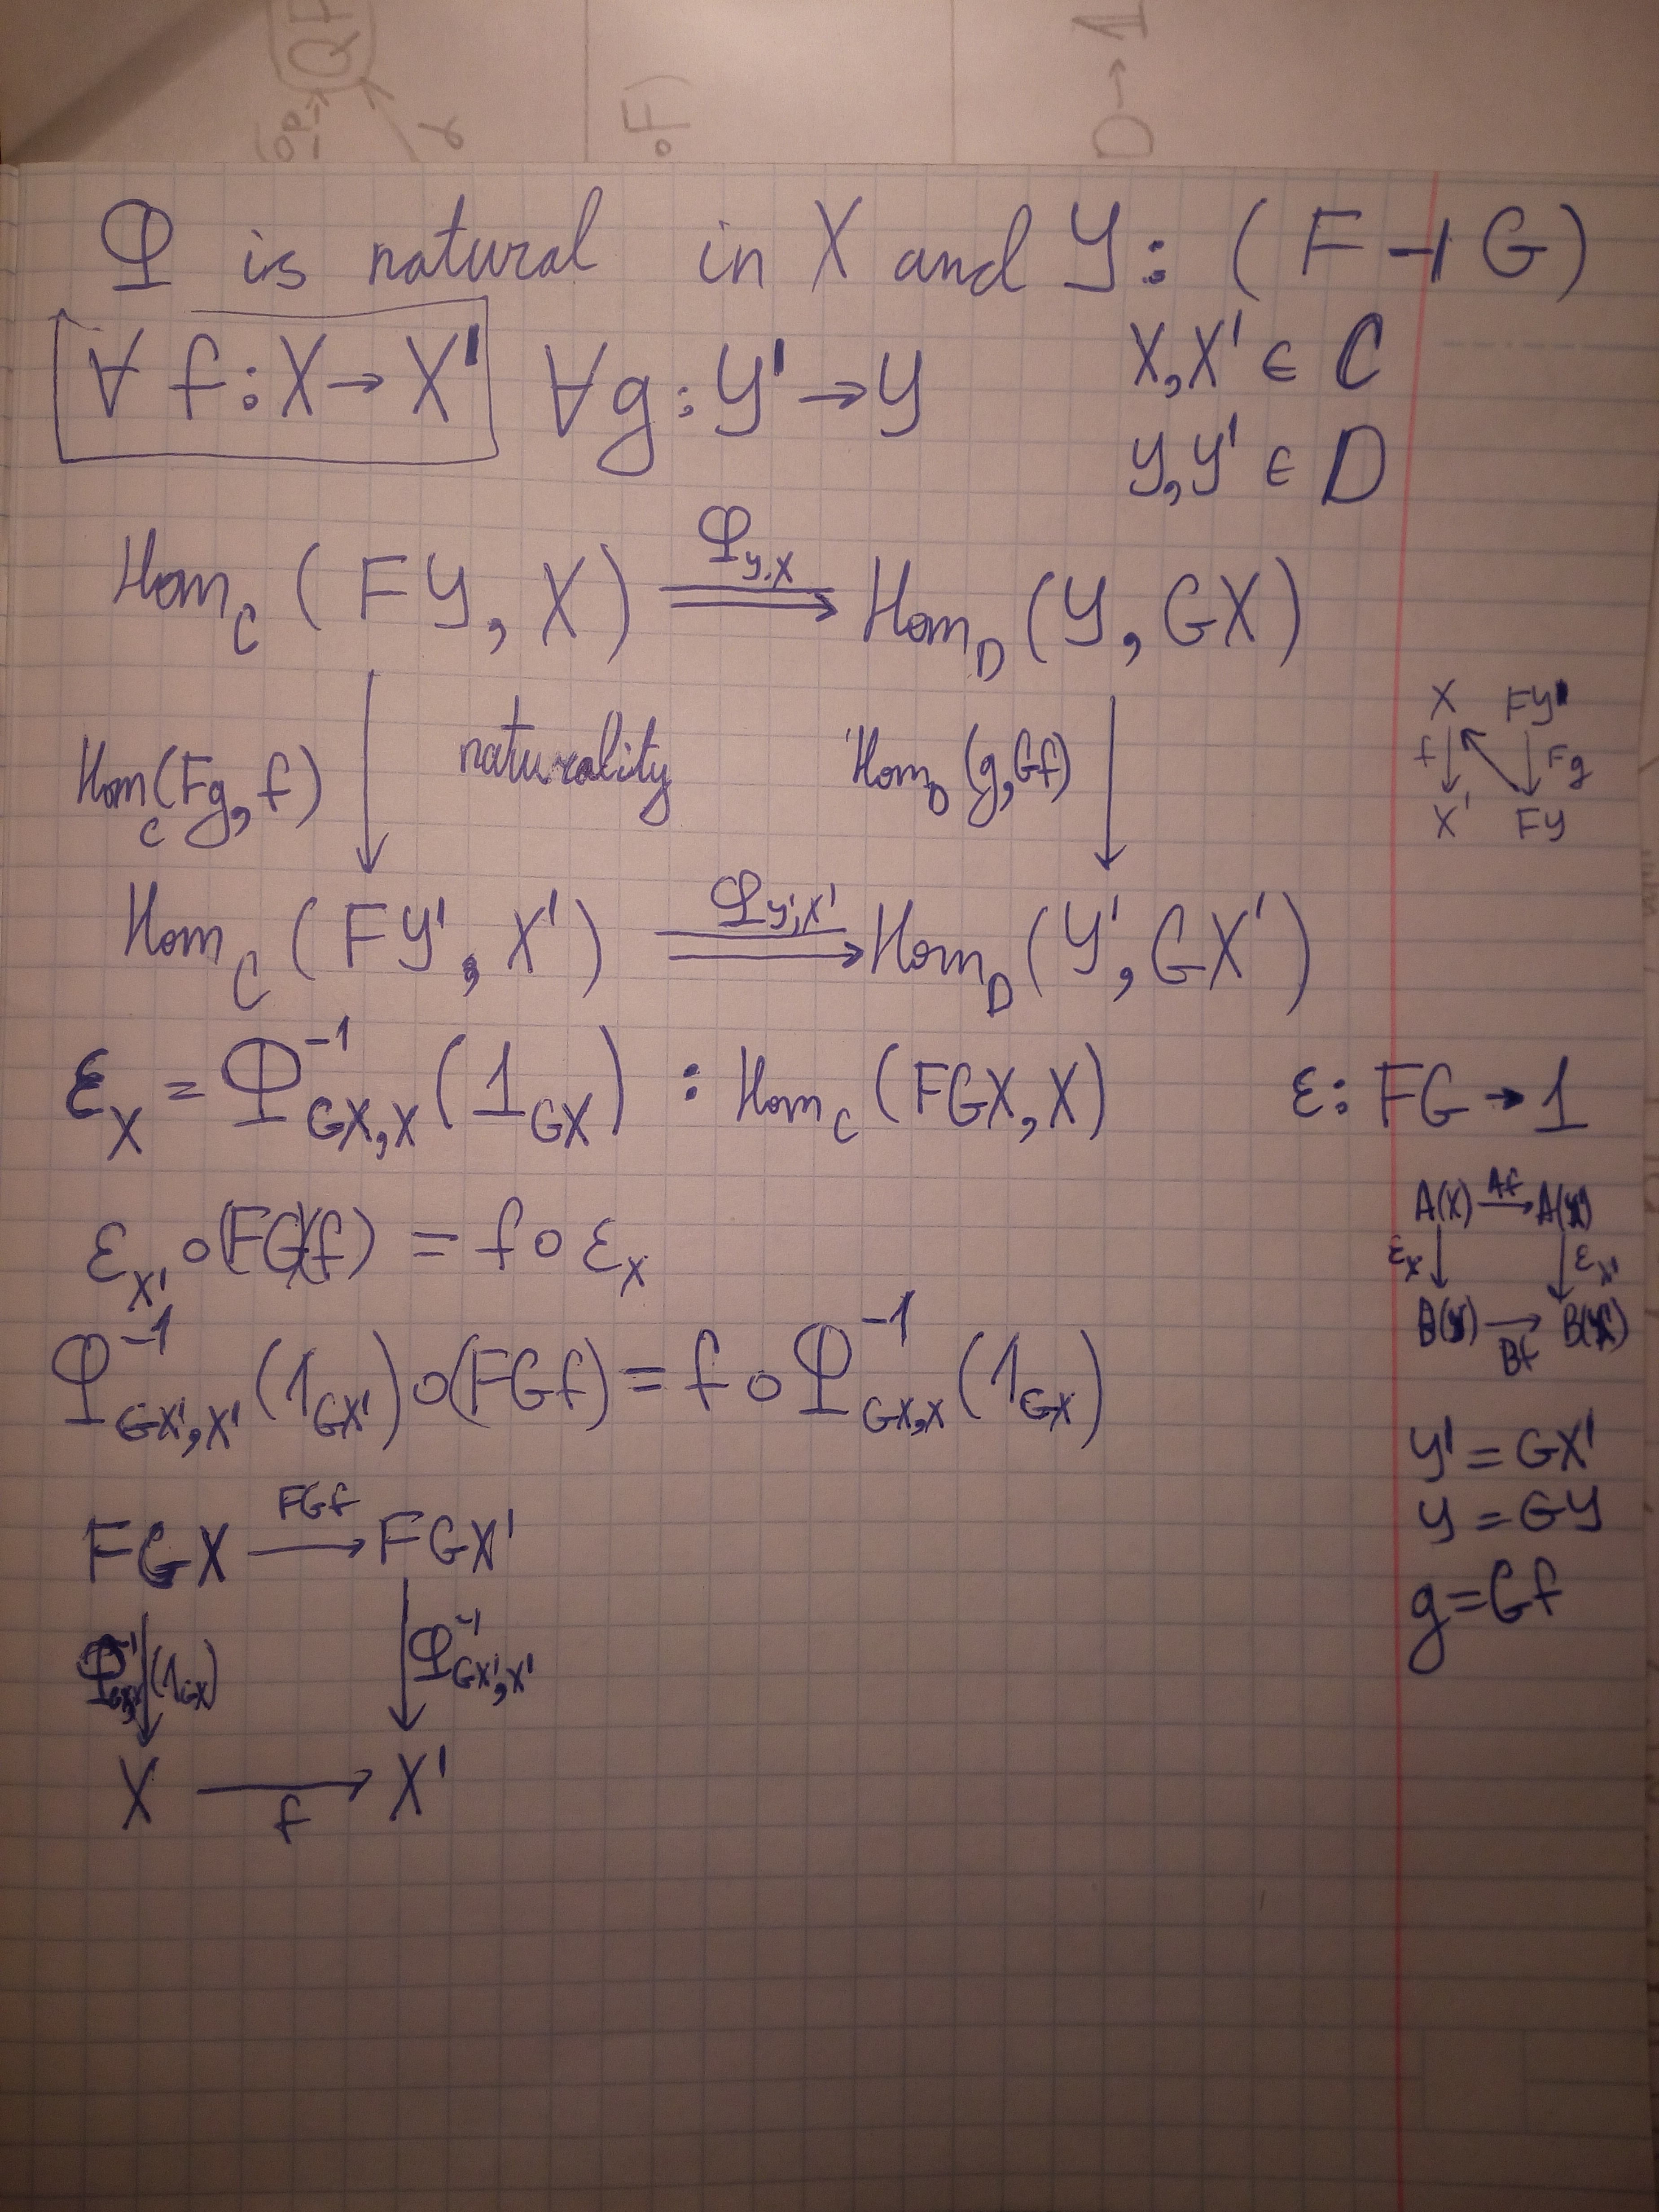 Φ is natural in X and Y: (F ⊣ G)
∀ f: X → X' ∀g: Y' → Y
X, X' ∈ C
Y, Y' ∈ D
Hom_C (FY, X) ⇒ Hom_D (Y, GX)
Φ_Y,X
Hom_C (Fg, f)
naturality
Hom_D (g, Gf)
X FY'
f Fg
X' FY
Hom_C (FY', X') ⇒ Hom_D (Y', GX')
Φ_Y',X'
ε_X = Φ^-1_GX,X (1_GX) : Hom_C (FGX, X)
ε: FG → 1
ε_X' ∘ (FGf) = f ∘ ε_X
A(X) → A(X')
Af
ε_X ε_X'
B(X) → B(X')
Bf
Φ^-1_GX',X' (1_GX') ∘ (FGf) = f ∘ Φ^-1_GX,X (1_GX)
Y' = GX'
Y = GY
g = Gf
FGX → FGX'
FGf
Φ^-1_GX,X (1_GX)
Φ^-1_GX',X'
X → X'
f
∘F)
D → 1